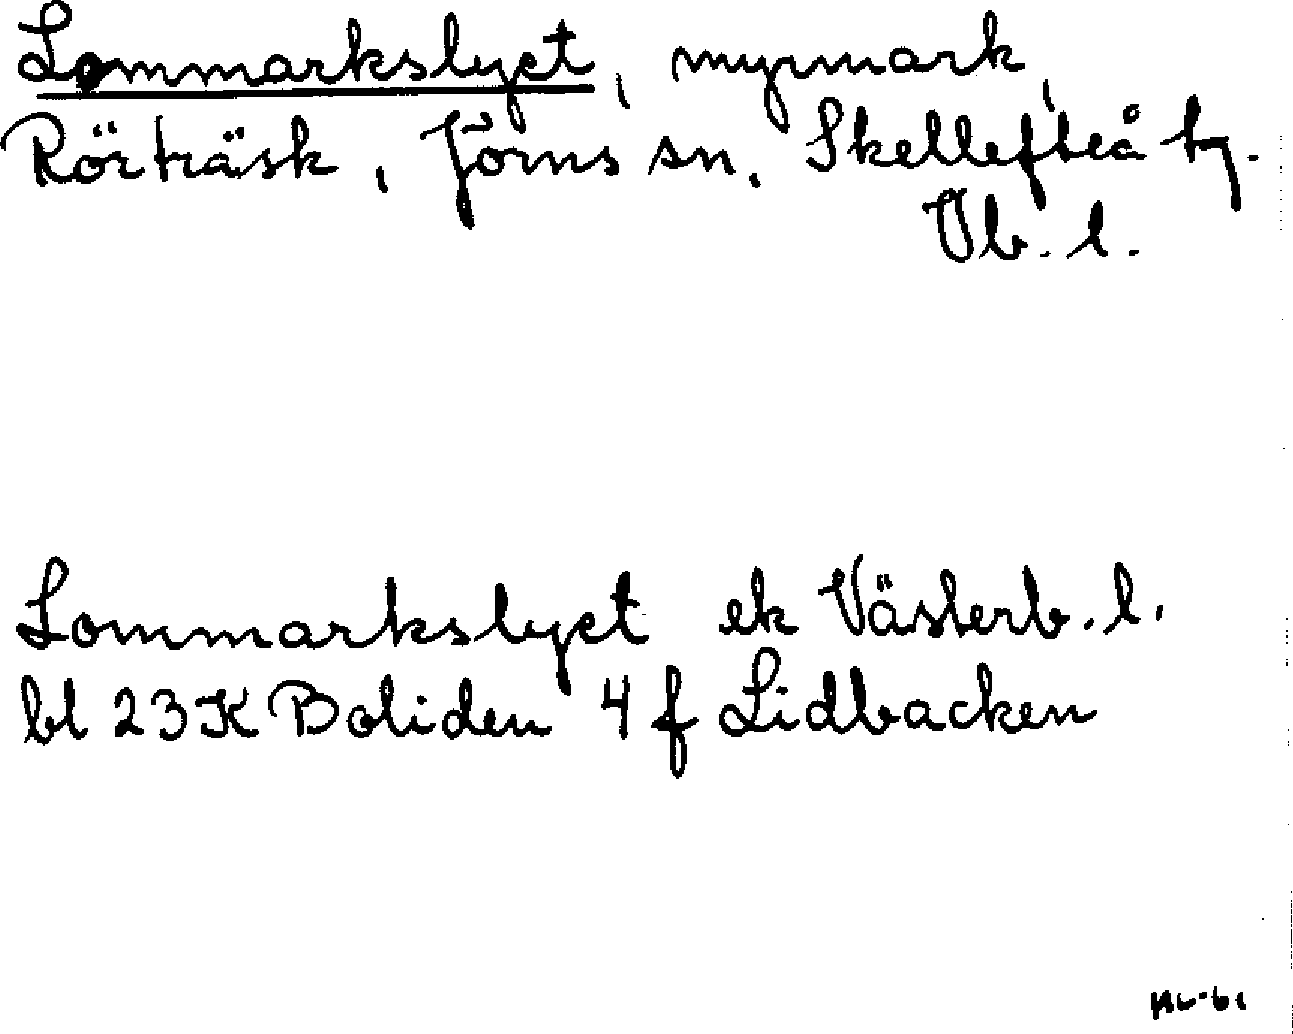 Lommarkslyet, myrmark,
Rörträsk, Jörns sn, Skellefteå tg.
Vb. l.
Lommarkslyet ek Västerb. l.
bl 23K Boliden 4 f Lidbacken